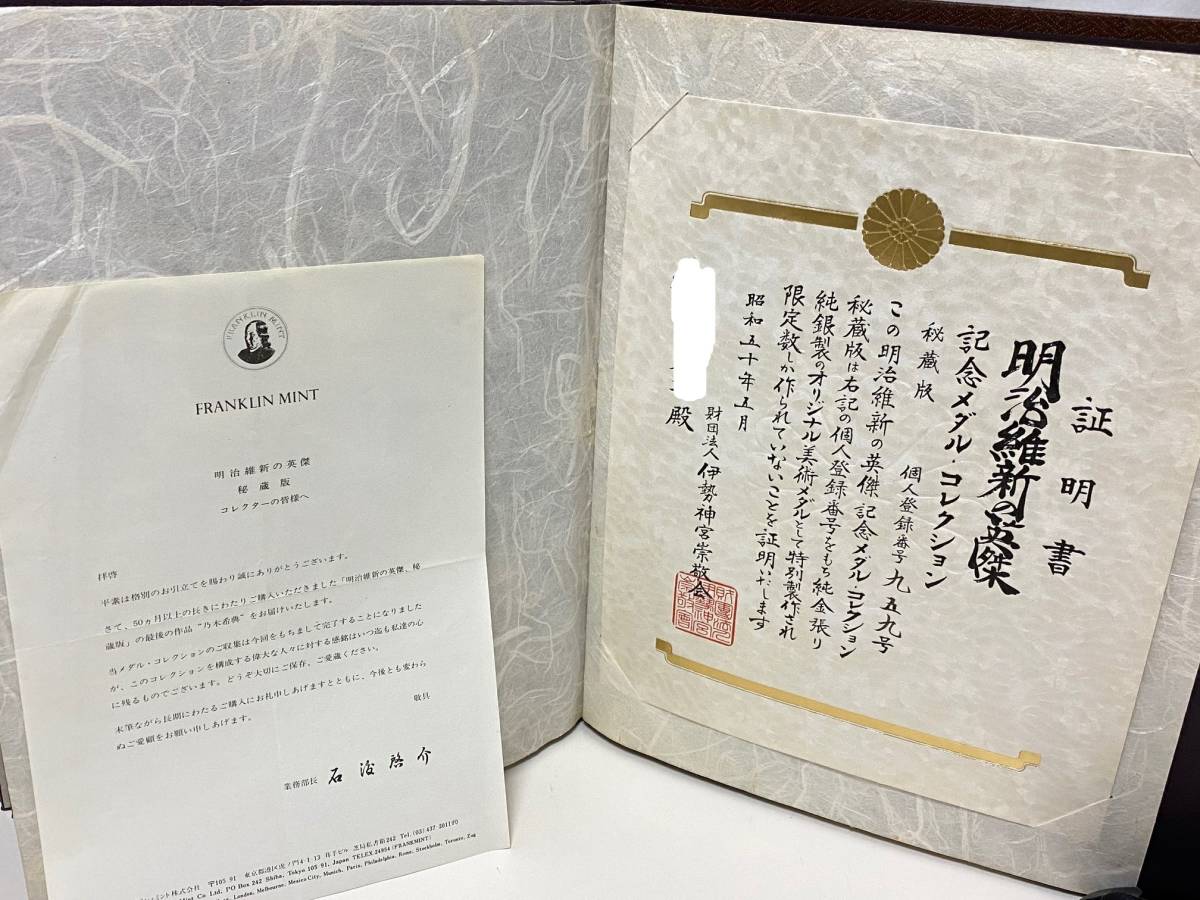 FRANKLIN MINT
FRANKLIN MINT
明治維新の英傑
秘蔵版
コレクターの皆様へ
拝啓
平素は格別のお引立てを賜わり誠にありがとうございます。
さて、50ヵ月以上の長きにわたりご購入いただきました「明治維新の英傑、秘
蔵版」の最後の作品“乃木希典”をお届けいたします。
当メダル・コレクションのご収集は今回をもちまして完了することになりました
が、このコレクションを構成する偉大な人々に対する感銘はいつ迄も私達の心
に残るものでございます。どうぞ大切にご保存、ご愛蔵ください。
末筆ながら長期にわたるご購入にお礼申しあげますとともに、今後とも変わら
ぬご愛顧をお願い申しあげます。
敬具
業務部長 石 啓介
ミント株式会社 〒105 91 東京都港区虎ノ門4-1-13 ビル 芝局私書箱242 Tel. (03) 437-3011
Mint Co Ltd, PO Box 242 Shiba, Tokyo 105 91, Japan TELEX 24954 (FRANKMINT)
London, Melbourne, Mexico City, Munich, Paris, Philadelphia, Rome, Stockholm, Toronto, Zug
証明書
明治維新の英傑
記念メダル・コレクション
秘蔵版 個人登録番号 九五九号
この明治維新の英傑 記念メダル コレクション
秘蔵版は右記の個人登録番号をもち純金張り
純銀製のオリジナル美術メダルとして特別製作され
限定数しか作られていないことを証明いたします
昭和五十年五月
財団法人 伊勢神宮崇敬会
殿
財団法人伊勢神宮崇敬会